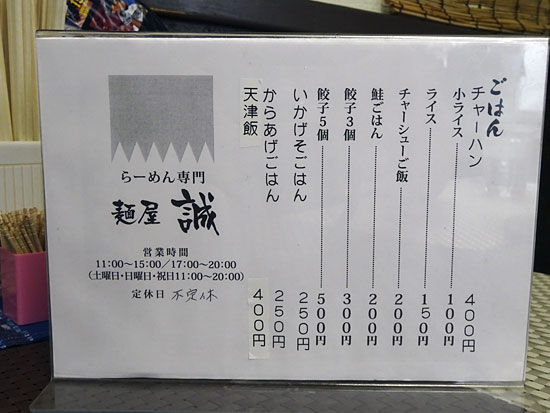 ごはん
チャーハン 400円
小ライス 100円
ライス 150円
チャーシューご飯 200円
鮭ごはん 200円
餃子3個 300円
餃子5個 500円
いかげそごはん 250円
からあげごはん 250円
天津飯 400円
らーめん専門
麺屋 誠
営業時間
11:00〜15:00/17:00〜20:00
(土曜日・日曜日・祝日11:00〜20:00)
定休日 不定休